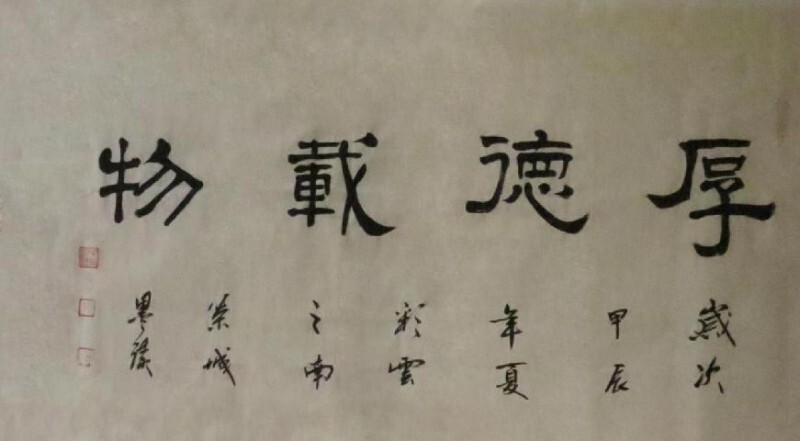 厚德載物
歲次
甲辰
年夏
彩雲
之南
榮城
墨緣